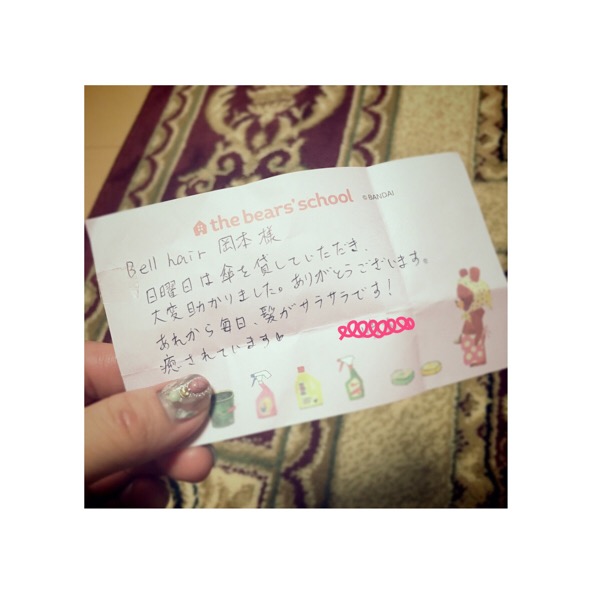 the bears' school ©BANDAI
Bell hair 岡本様
日曜日は傘を貸していただき、
大変助かりました。ありがとうございます。
あれから毎日、髪がサラサラです!
癒されています♪